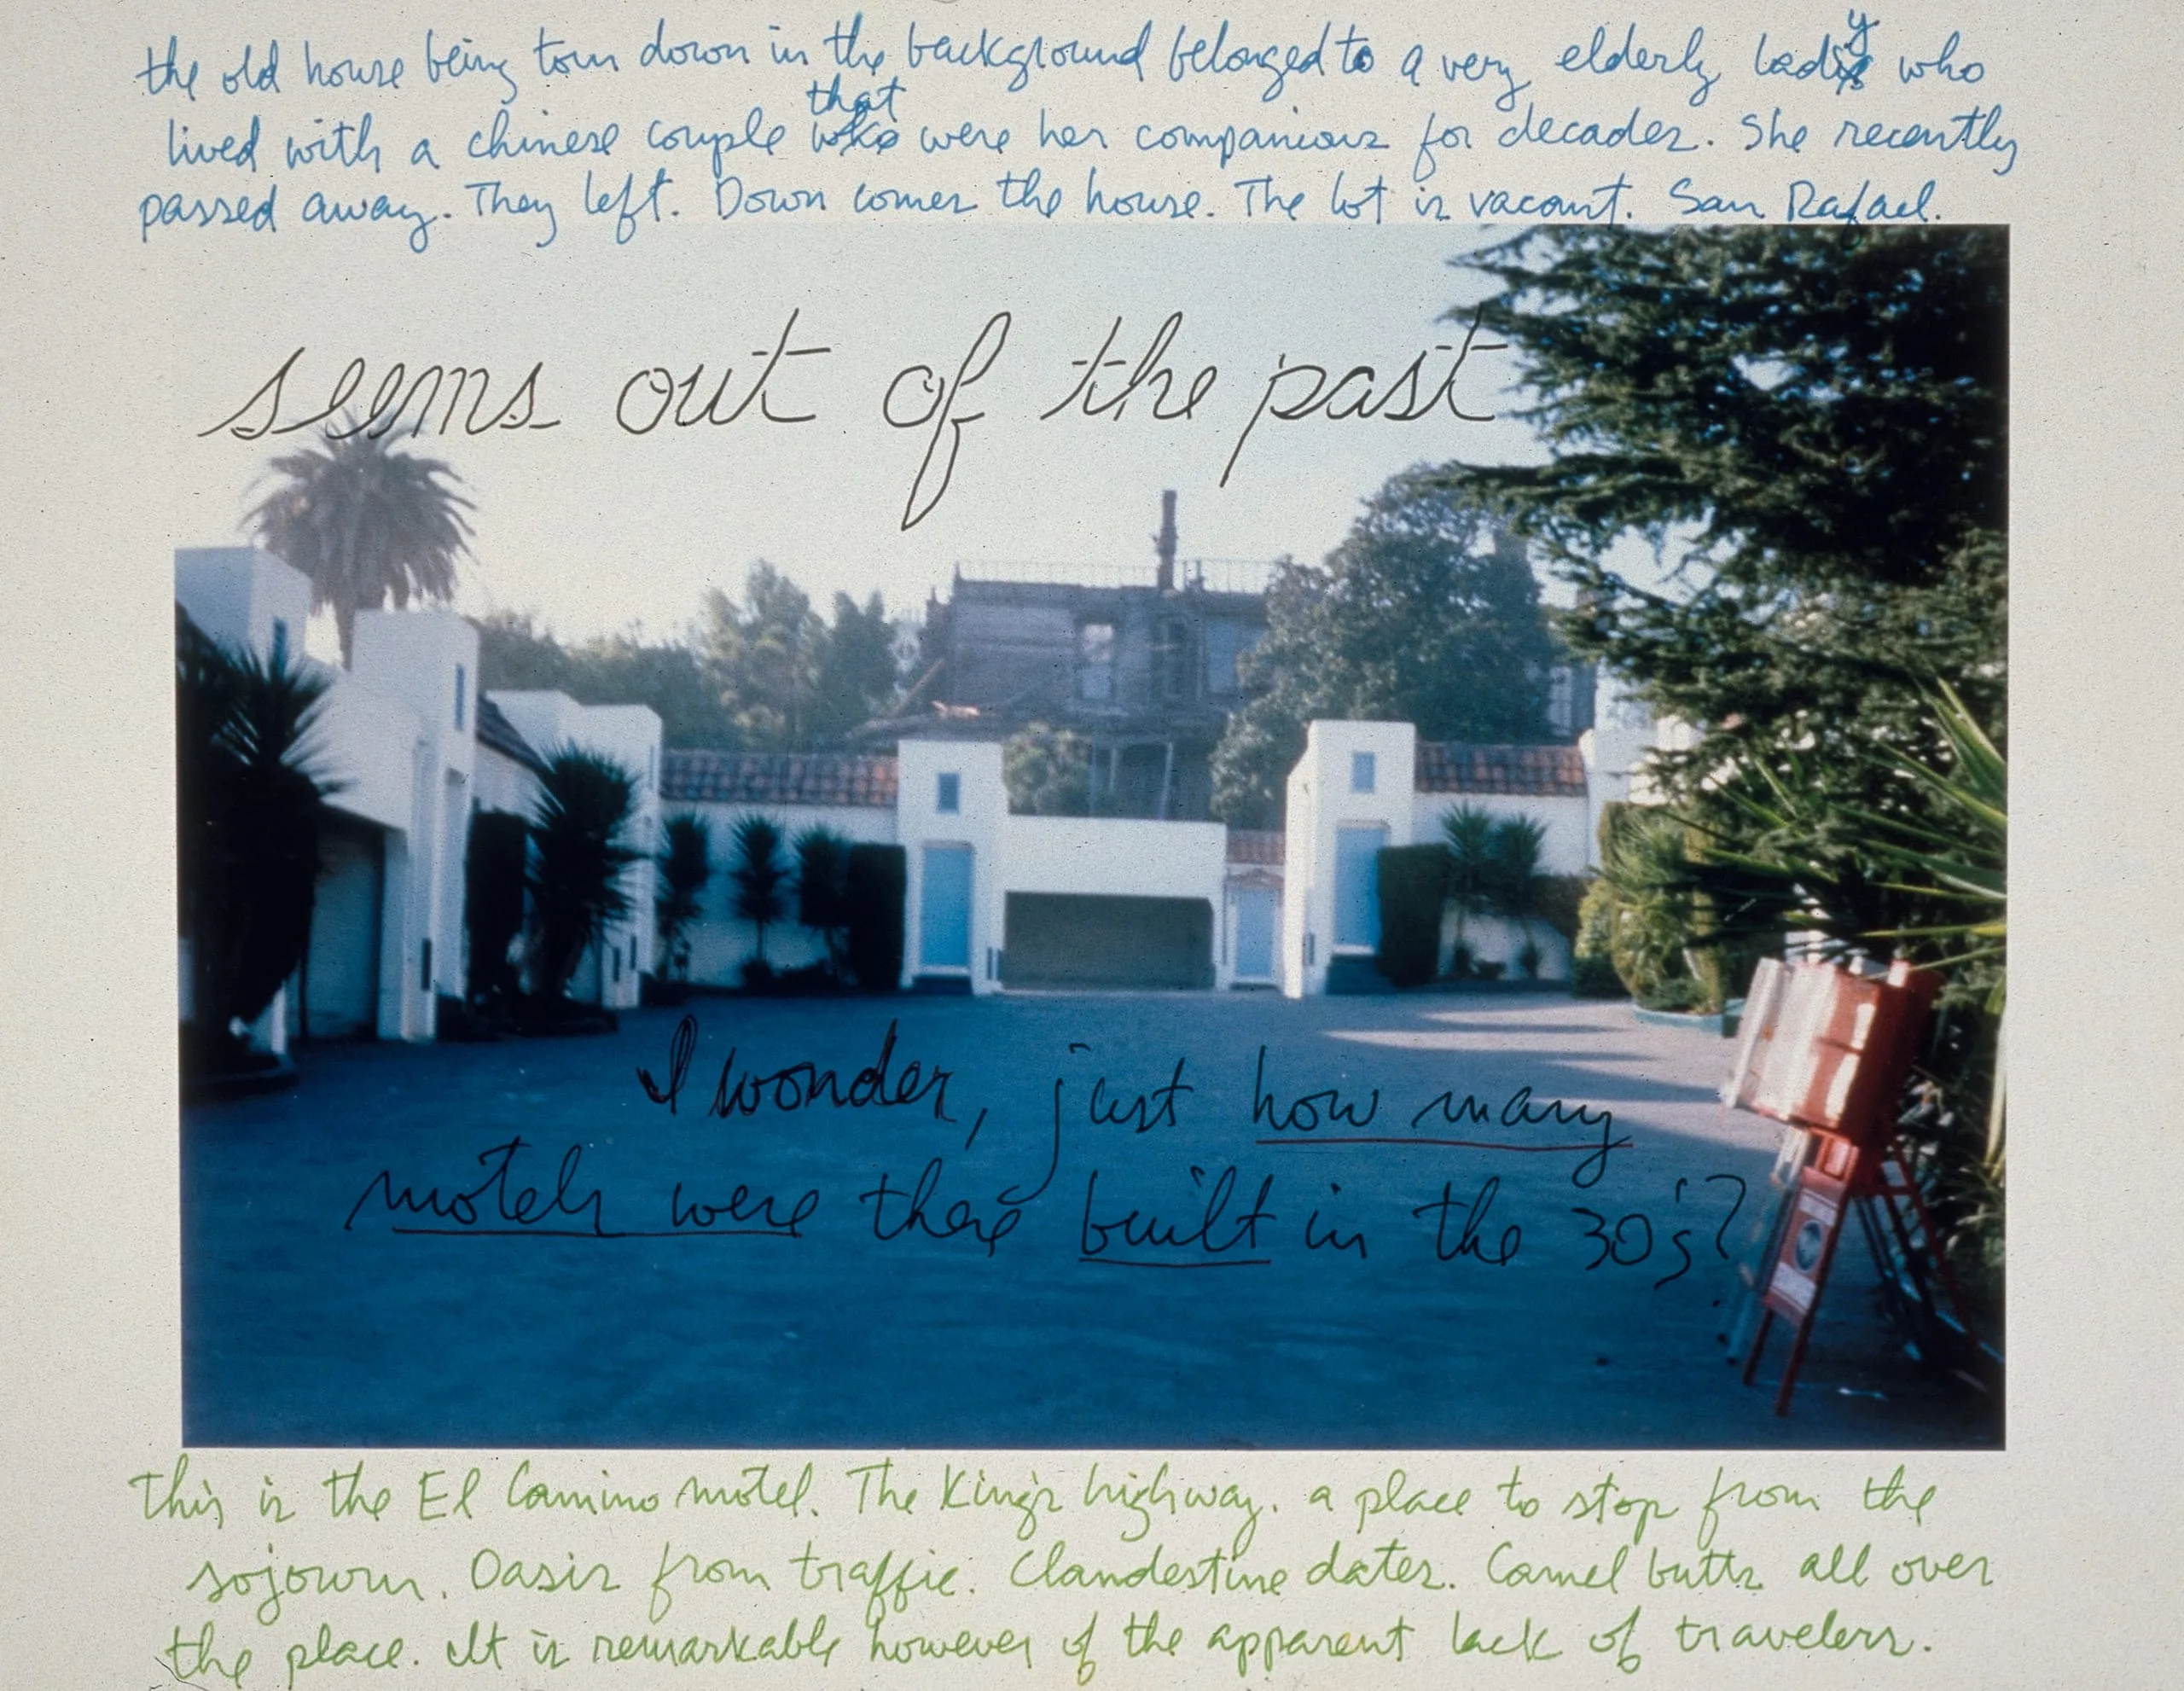 the old house being torn down in the background belonged to a very elderly lady who
lived with a chinese couple that were her companions for decades. She recently
passed away. They left. Down comes the house. The lot is vacant. San Rafael.
seems out of the past
I wonder, just how many
motels were there built in the 30's?
This is the El Camino motel. The King's highway. a place to stop from the
sojourn. Oasis from traffic. Clandestine dates. Camel butts all over
the place. It is remarkable however of the apparent lack of travelers.